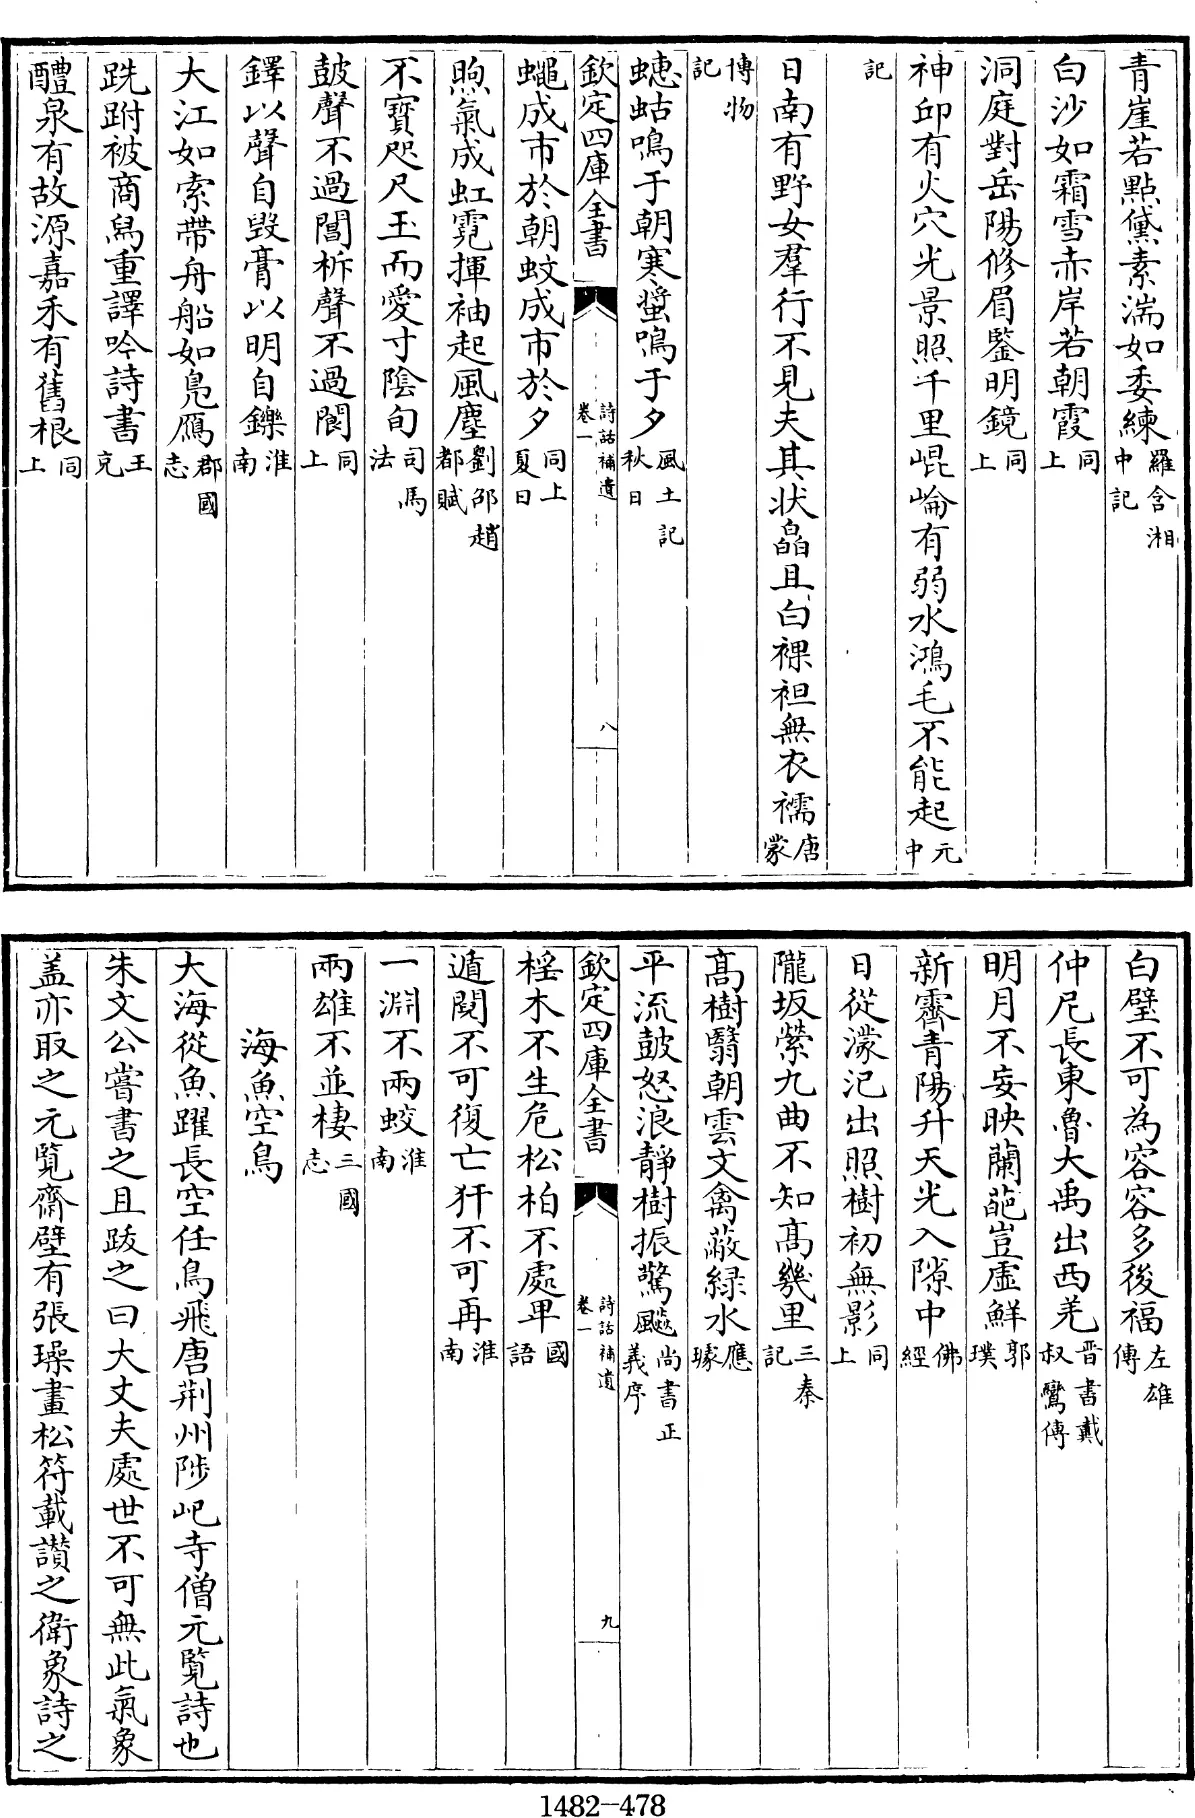 青崖若點黛素湍如委練羅含湘中記
白沙如霜雪赤岸若朝霞同上
洞庭對岳陽修眉鑒明鏡同上
神邱有火穴光景照千里崐崘有弱水鴻毛不能起元中
記
日南有野女羣行不見夫其状皛且白裸袒無衣襦唐蒙
博物記
蟪蛄鳴于朝寒螿鳴于夕風土記秋日
欽定四庫全書
詩話補遺
卷一
八
蠅成市於朝蚊成市於夕同上夏日
煦氣成虹霓揮袖起風塵劉邵趙都賦
不寳咫尺玉而愛寸陰旬司馬法
鼓聲不過閶柝聲不過閬同上
鐸以聲自毁膏以明自鑠淮南
大江如索帶舟船如鳧鴈郡國志
跣跗被商舄重譯吟詩書王充
醴泉有故源嘉禾有舊根同上
白璧不可為容容多後福左雄傳
仲尼長東魯大禹出西羌晉書戴叔鸞傳
明月不妄映蘭葩豈虛鮮郭璞
新霽青陽升天光入隙中佛經
日從濛汜出照樹初無影同上
隴坂縈九曲不知髙幾里三秦記
髙樹翳朝雲文禽蔽緑水應璩
平流鼓怒浪靜樹振驚飈尚書正義序
欽定四庫全書
詩話補遺
卷一
九
檉木不生危松柏不處卑國語
遁關不可復亡犴不可再淮南
一淵不兩蛟淮南
兩雄不並棲三國志
海魚空鳥
大海從魚躍長空任鳥飛唐荆州陟屺寺僧元覧詩也
朱文公嘗書之且跋之曰大丈夫處世不可無此氣象
盖亦取之元覧齋壁有張璪畫松符載讃之衛象詩之
1482-478